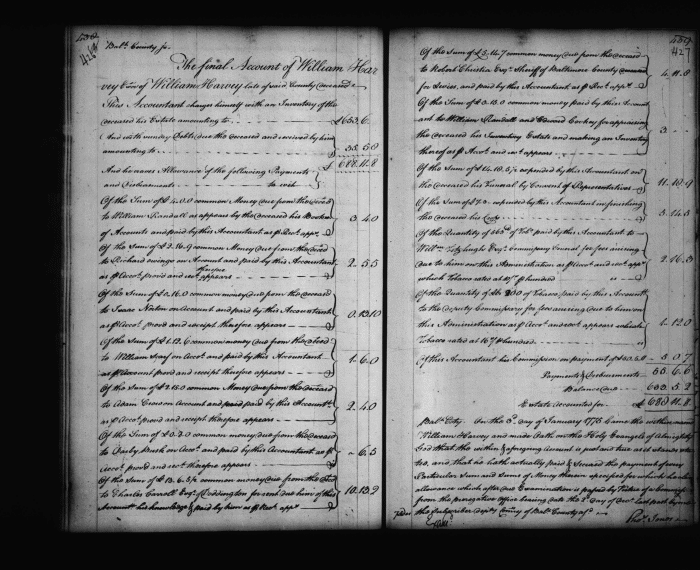 Balt. County ss.
The final Account of William Har
vey Exr of William Harvey late of said County deceased
This Accountant charges himself with an Inventory of the
deceased his Estate amounting to £633.6.
And with sundry Debts due the deceased and received by him
amounting to 55.5.8
£ 688.11.8
And he craves Allowance of the following Payments
and Disbursements to wit
Of the Sum of £4.0.0 common Money due from the deced
to William Randall as appears by the deceased his Books 3.4.0
of Accounts and paid by this Accountant as p Rect appr
Of the Sum of £3.16.9 common Money due from the deced
to Richard Owings on Account and paid by this Accountant 2.5.5
as p Accot. proved and rect. therefore appears
Of the Sum of £0.16.0 common money due from the deceased
to Isaac on Account and paid by this Accountant 0.13.10
as p Accot. proved and receipt therefore appears
Of the Sum of £1.12.6 common money due from the deced
to William on Accot. and paid by this Accountant 1.6.0
as p Account proved and receipt therefore appears
Of the Sum of £2.15.0 common Money due from the deceased
to Adam on Account and paid by this Accountt. 2.4.0
as p Accot. proved and receipt therefore appears
Of the Sum of common money due from the deceased
to on Accot. and paid by this Accountant as p 6.5
Accot. proved and rect. therefore appears
Of the Sum of £13.6.5½ common money due from the Deced
to Charles Carroll Esqr. of Duddington for rent due him of this 10.13.2
Accountt. his knowledge & paid by him as p Rect. appr.
427
Of the Sum of £5.14.7 common money due from the deceased
to Robert Christie Esqr. Sheriff of Baltimore County
for dues, and paid by this Accountant as p Rect. appr. 4.11.8
Of the Sum of £3.15.0 common money paid by this Account
ant to William Randall and Edward Cockey for appraising
the deceased his Inventory Estate and making an Inventory 3
thereof as p Accot. and rect. appears
Of the Sum of £14.13.5½ expended by this Accountant on
the deceased his Funeral by Consent of Representatives 11.10.9
Of the Sum of £7.3. expended by this Accountant in finishing
the deceased his Crop 5.14.5
Of the Quantity of 363 of Tobo. paid by this Accountant to
Willm. Fitzhugh Esqr. Commissary General for fees accruing
due to him on this Administration as p Accot. and rect. appr. 2.16.3
which Tobacco rates at p hundred
Of the Quantity of lbs 200 of Tobacco paid by this Accountt.
to the deputy Commissary for fees accruing due to him on
this Administration as p Accot. and rect. appears which 1.12.0
Tobacco rates at 16/ p hundred
Of this Accountant his Commission on payment of £50.8.
Payments & Disbursements 55.6.6
Balance due 633.5.2
Estate accounted for £ 688.11.8
Balt. Coty. On the 3d. day of January 1775 Came the within named
William Harvey and made Oath on the Holy Evangels of Almighty
God that the within & aforegoing Account is just and true as it stands sta-
ted, and that he hath actually paid & secured the payment of every
Particular Sum and Sums of Money therein specified for which he craves
allowance which after due Examination is passed by Virtue of a Commission
from the prerogative office bearing date the day of last past before
the Subscriber depty. Comry. of Balt. County afsd.
Thos. Jones